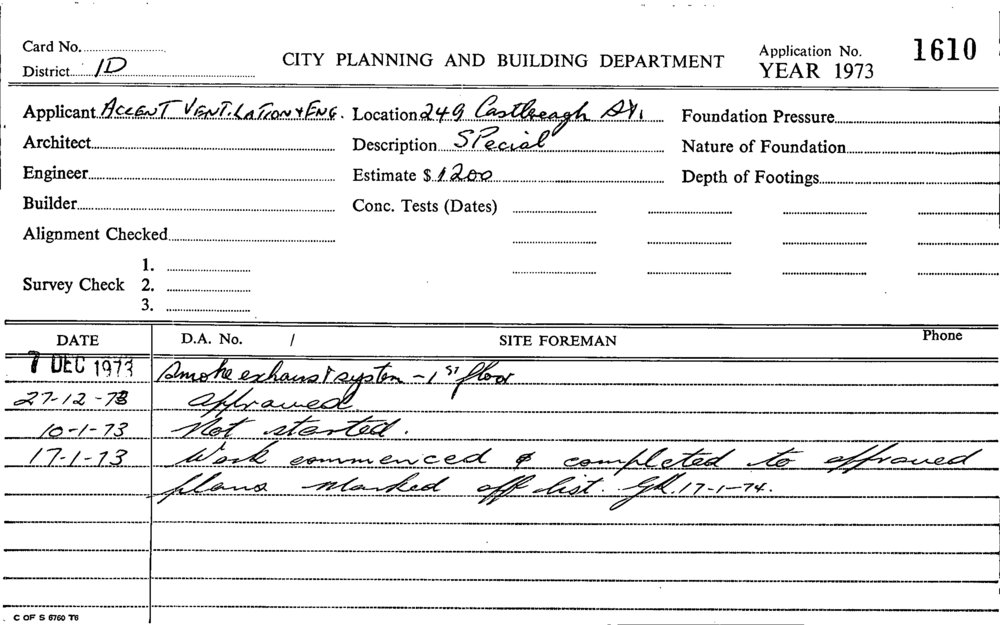 Card No.
District 1D
CITY PLANNING AND BUILDING DEPARTMENT
Application No. 1610
YEAR 1973
Applicant ACCENT VENTILATION & ENG.
Location 249 Castlereagh St.
Foundation Pressure
Architect
Description Special
Nature of Foundation
Engineer
Estimate $ 1200
Depth of Footings
Builder
Conc. Tests (Dates)
Alignment Checked
Survey Check
1.
2.
3.
DATE
D.A. No. /
SITE FOREMAN
Phone
7 DEC 1973 Smoke exhaust system - 1st floor
27-12-73 approved
10-1-73 Not started.
17-1-73 Work commenced & completed to approved
plans marked off list. 17-1-74.
C OF S 6760 T6